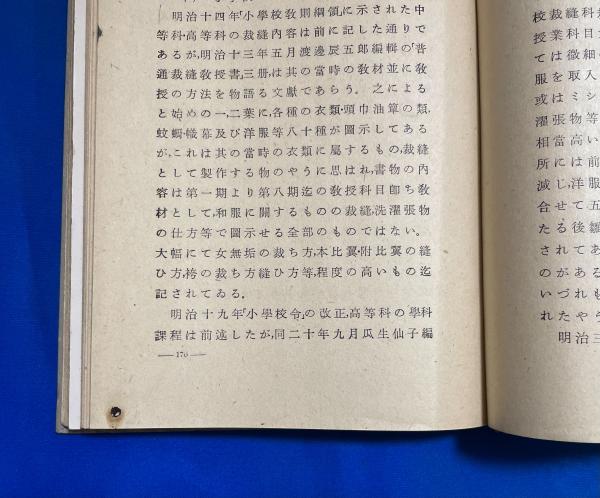 明治十四年「小學校敎則綱領」に示された中
等科,高等科の裁縫內容は前に記した通りで
あるが,明治十三年五月渡邊辰五郎編輯の「普
通裁縫敎授書」三册は其の當時の敎材並に敎
授の方法を物語る文獻であらう。之による
と始めの一,二葉に各種の衣類・頭巾油簞の類,
蚊帳幕及び洋服等八十種が圖示してある
が,これは其の當時の衣類に屬するもの,裁縫
として製作する物のやうに思はれ,書物の內
容は第一期より第八期迄の敎授科目卽ち敎
材として和服に關するものの裁縫,洗濯張物
の仕方等で圖示せる全部のものではない。
大幅にて女無垢の裁ち方,本比翼・附比翼の縫
ひ方,袴の裁ち方縫ひ方等,程度の高いもの迄
記されてゐる。
明治十九年「小學校令」の改正,高等科の學科
課程は前述したが,同二十年九月瓜生仙子編
—176—
校裁縫科
授業科目
ては微細
服を取入
或はミシ
濯張物等
相當高い
所には前
減じ,洋服
合せて五
たる後雛
されてあ
のがある
いづれも
れたやう
明治三